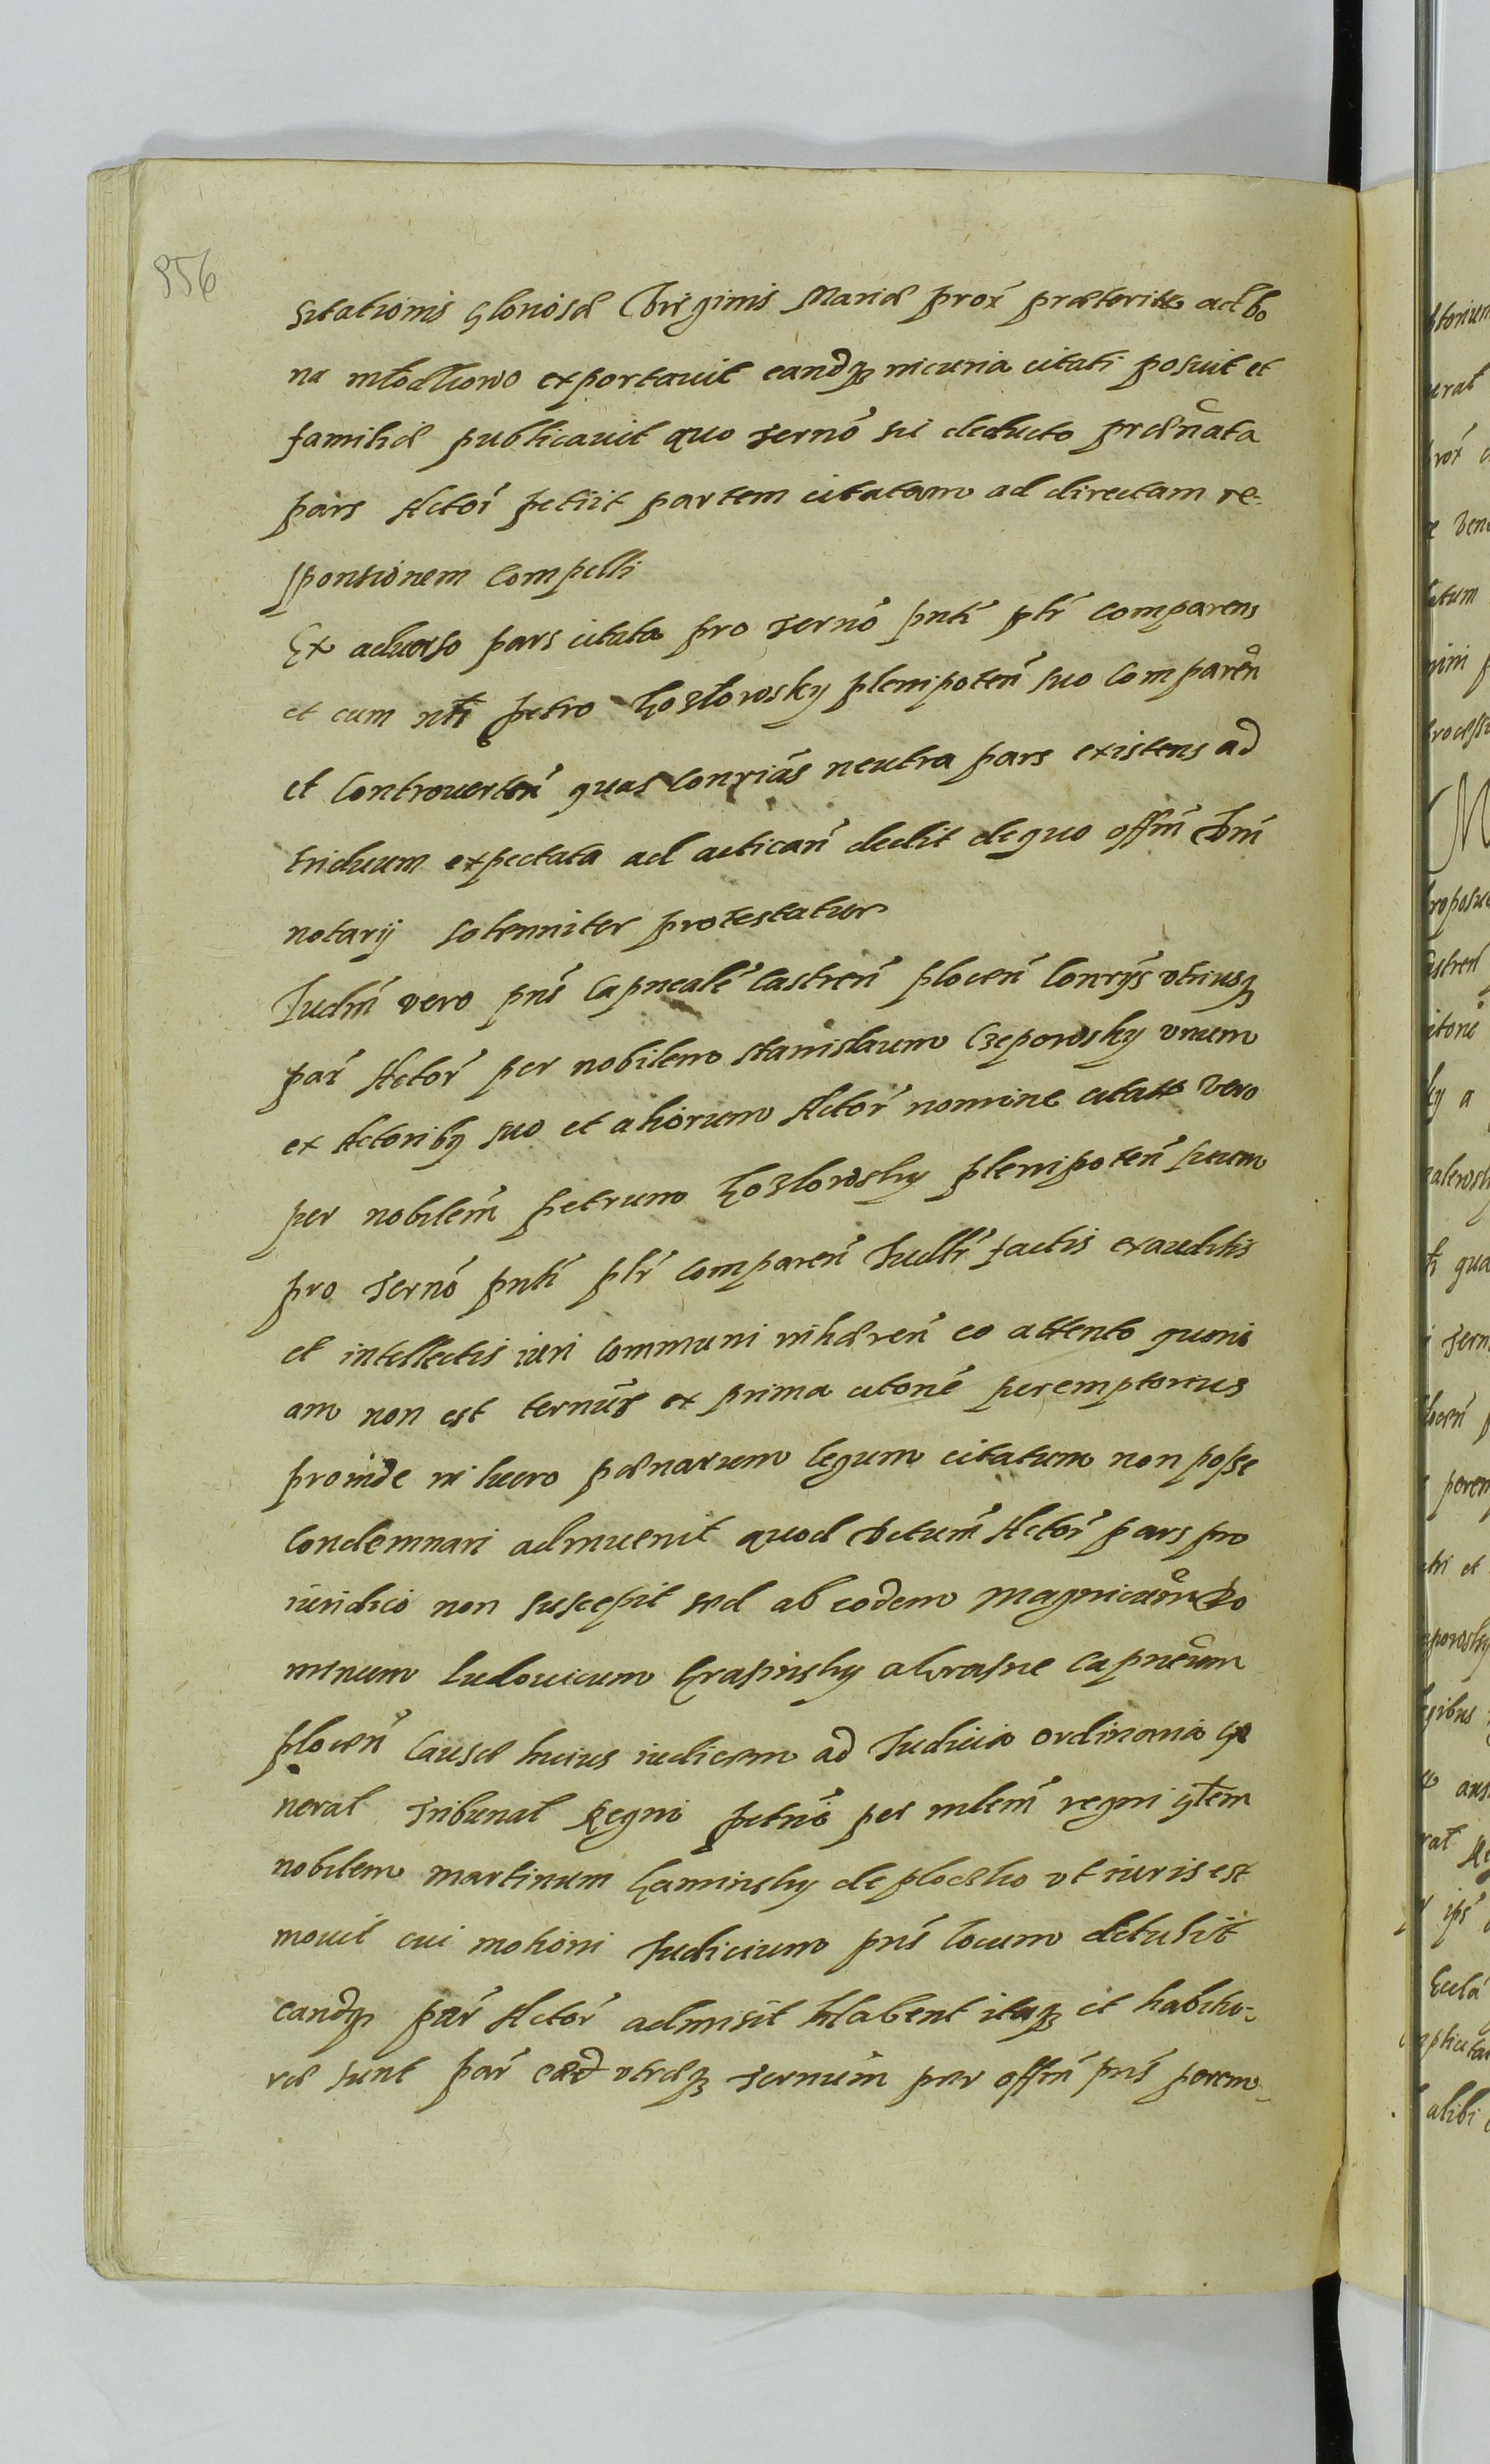 956
sitationis Gloriosæ Virginis Mariæ prox̃ præteritæ ad bo
na młodkowo exportauit eandqȝ in curia citati posuit et
familiæ publicauit quo Termõ sic deducto prænãta
pars Actor̃ petiit partem citatam ad directam re-
sponsionem compelli
Ex aduerso pars citata pro Termõ pñti plr̃ comparens
et cum nłi Petro Kozłowsky plenipoteñ suo compareñ
et controuerteñ quas conr̃iãs neutra pars existens ad
triduum expectata ad acticañ dedit de quo offm̃ dñi
notarij solenniter protestatur
Iudm̃ vero pñs Capneale Castreñ ploceñ conr̃ijs vtriusqȝ
par̃ Actor̃ per nobilem Stanislaum Czepowsky vnum
ex Actoribȝ suo et aliorum Actor̃ nomine citatæ vero
per nobilem̃ Petrum Kozlowsky plenipoteñ suum
pro Termõ pñti plr̃ compareñ Iudlr̃ factis exauditis
et intellectis iuri communi inhæreñ eo attento quoni
am non est termũs ex prima citonẽ peremptorius
proinde in lucro pænarum legum citatum non posse
condemnari adinuenit quod dectum̃ Actor̃ pars pro
iuridico non suscepit sed ab eodem magnicum̃ Do
minum Ludouicum Krasinsky a Krasne Capneum
ploceñ causæ huius iudicem ad Iudicia ordinaria ge
neral Tribunal Regni Petric̃ per mlem̃ regni głem
nobilem martinum Kaminsky de plocsko vt iuris est
mouit cui motioni Iudicium pñs locum detulit
eandqȝ par̃ Actor̃ admisit Habent itaqȝ et habitu-
ræ sunt par̃ eæd vtræqȝ Termum̃ per offm̃ pñs perem-